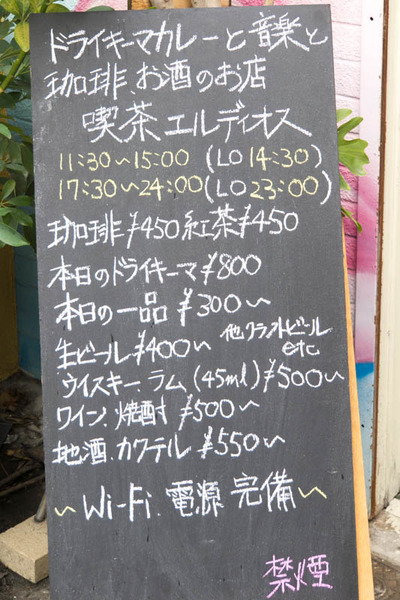 ドライキーマカレーと音楽と
珈琲、お酒のお店
喫茶エルディオス
11:30〜15:00 (LO 14:30)
17:30〜24:00 (LO 23:00)
珈琲¥450 紅茶¥450
本日のドライキーマ¥800
本日の一品 ¥300〜
生ビール¥400〜 他クラフトビール etc
ウイスキー、ラム、(45ml) ¥500〜
ワイン、焼酎 ¥500〜
地酒、カクテル ¥550〜
〜Wi-Fi、電源 完備〜
禁煙